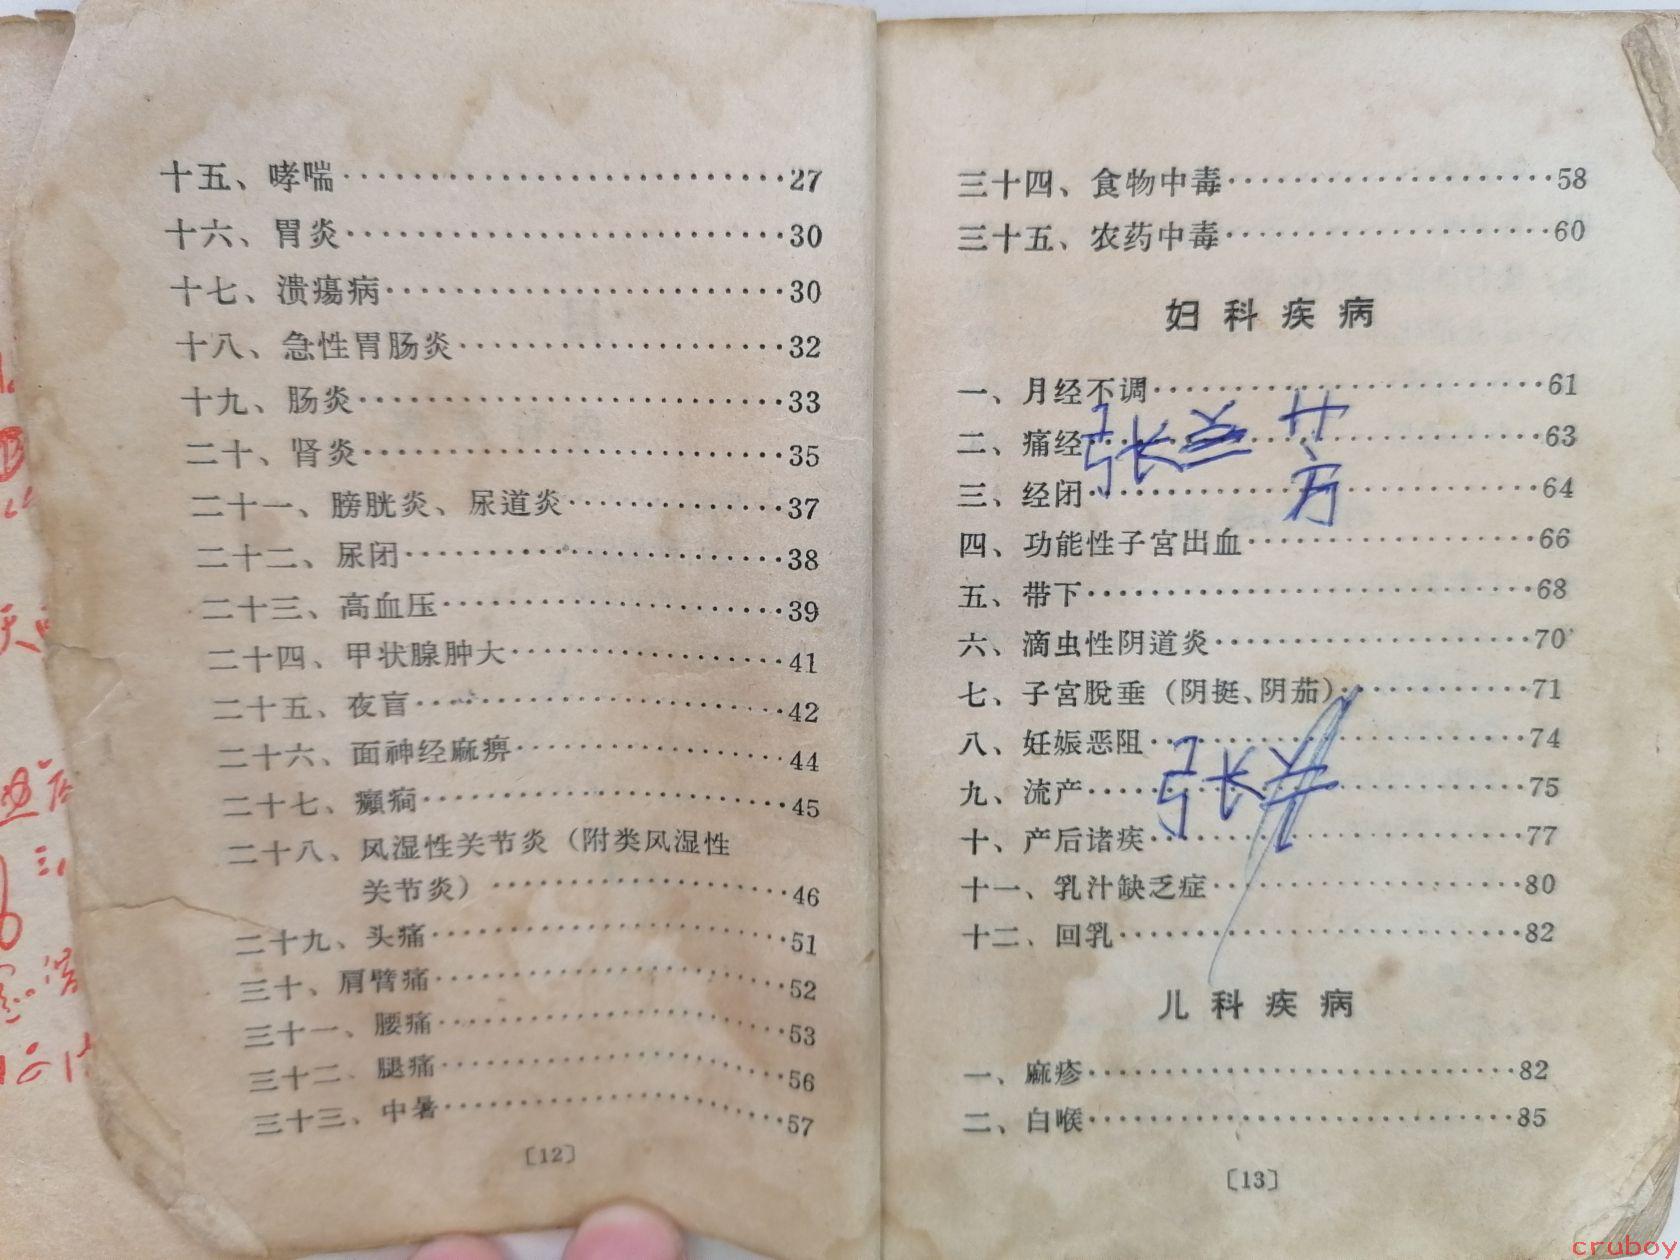 十五、哮喘……27
十六、胃炎……30
十七、溃瘍病……30
十八、急性胃肠炎……32
十九、肠炎……33
二十、肾炎……35
二十一、膀胱炎、尿道炎……37
二十二、尿闭……38
二十三、高血压……39
二十四、甲状腺肿大……41
二十五、夜盲……42
二十六、面神经麻痹……44
二十七、癲痫……45
二十八、风湿性关节炎（附类风湿性
关节炎）……46
二十九、头痛……51
三十、肩臂痛……52
三十一、腰痛……53
三十二、腿痛……56
三十三、中暑……57
〔12〕
三十四、食物中毒……58
三十五、农药中毒……60
妇科疾病
一、月经不调……61
二、痛经……63
张兰芳
三、经闭……64
四、功能性子宫出血……66
五、带下……68
六、滴虫性阴道炎……70
七、子宫脫垂（阴挺、阴茄）……71
八、妊娠恶阻……74
张兰
九、流产……75
十、产后诸疾……77
十一、乳汁缺乏症……80
十二、回乳……82
儿科疾病
一、麻疹……82
二、白喉……85
〔13〕
cruboy